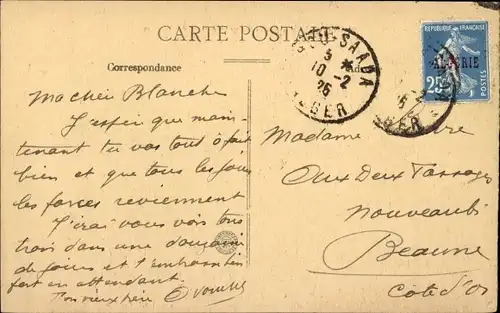 CARTE POSTALE
Correspondance
BOU-SAADA
5 *
10 -2
26
ALGER
ALGÉRIE
25c
POSTES
Ma chère Blanche
J'espère que main-
tenant tu vas tout à fait
bien et que tous les jours
les forces reviennent
J'irai vous voir tous
trois dans une douzaine
de jours et t'embrasse bien
fort en attendant
Ton vieux père
Madame
Aux Deux Passages
Nouveautés
Beaune
Côte d'Or